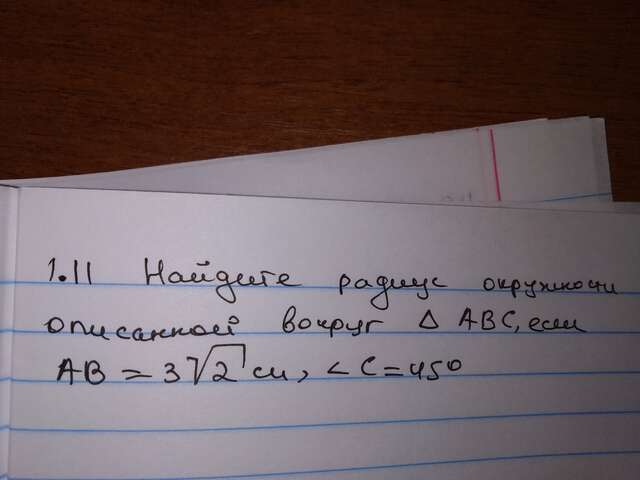 1.11 Найдите радиус окружности
описанной вокруг Δ ABC, если
AB = 3√2 см, ∠C = 45°